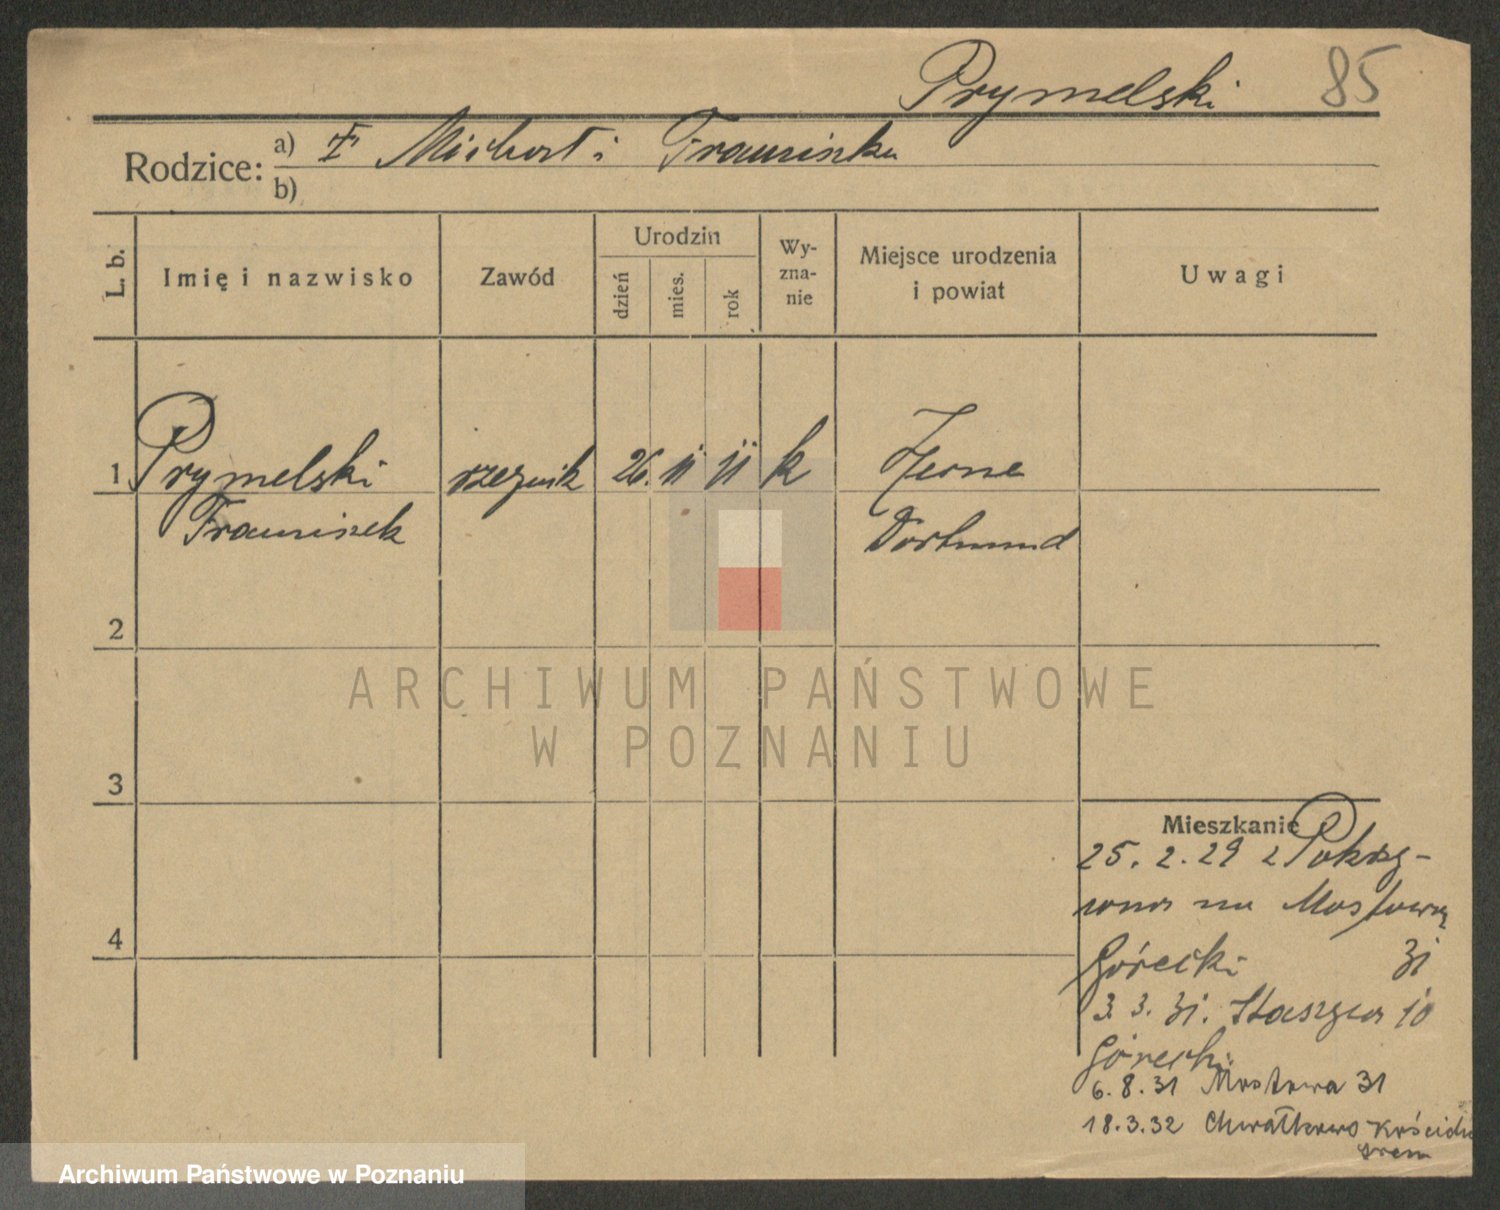 Prymelski 85
Rodzice: a) Michał i Franciszka
b)
L. b.
Imię i nazwisko
Zawód
Urodzin
dzień
mies.
rok
Wy-
zna-
nie
Miejsce urodzenia
i powiat
Uwagi
1 Prymelski rzeznik 26. 11 11 k Herne
Franciszek Dortmund
2
3
4
Mieszkanie
25. 2. 29 z Pokrzy-
wna na Mostową
Górecki 31
3. 3. 31. Staszyca 10
Górecki
6. 8. 31 Mostowa 31
18.3.32 Chwałkowo Kościelne
Srem
ARCHIWUM PAŃSTWOWE
W POZNANIU
Archiwum Państwowe w Poznaniu